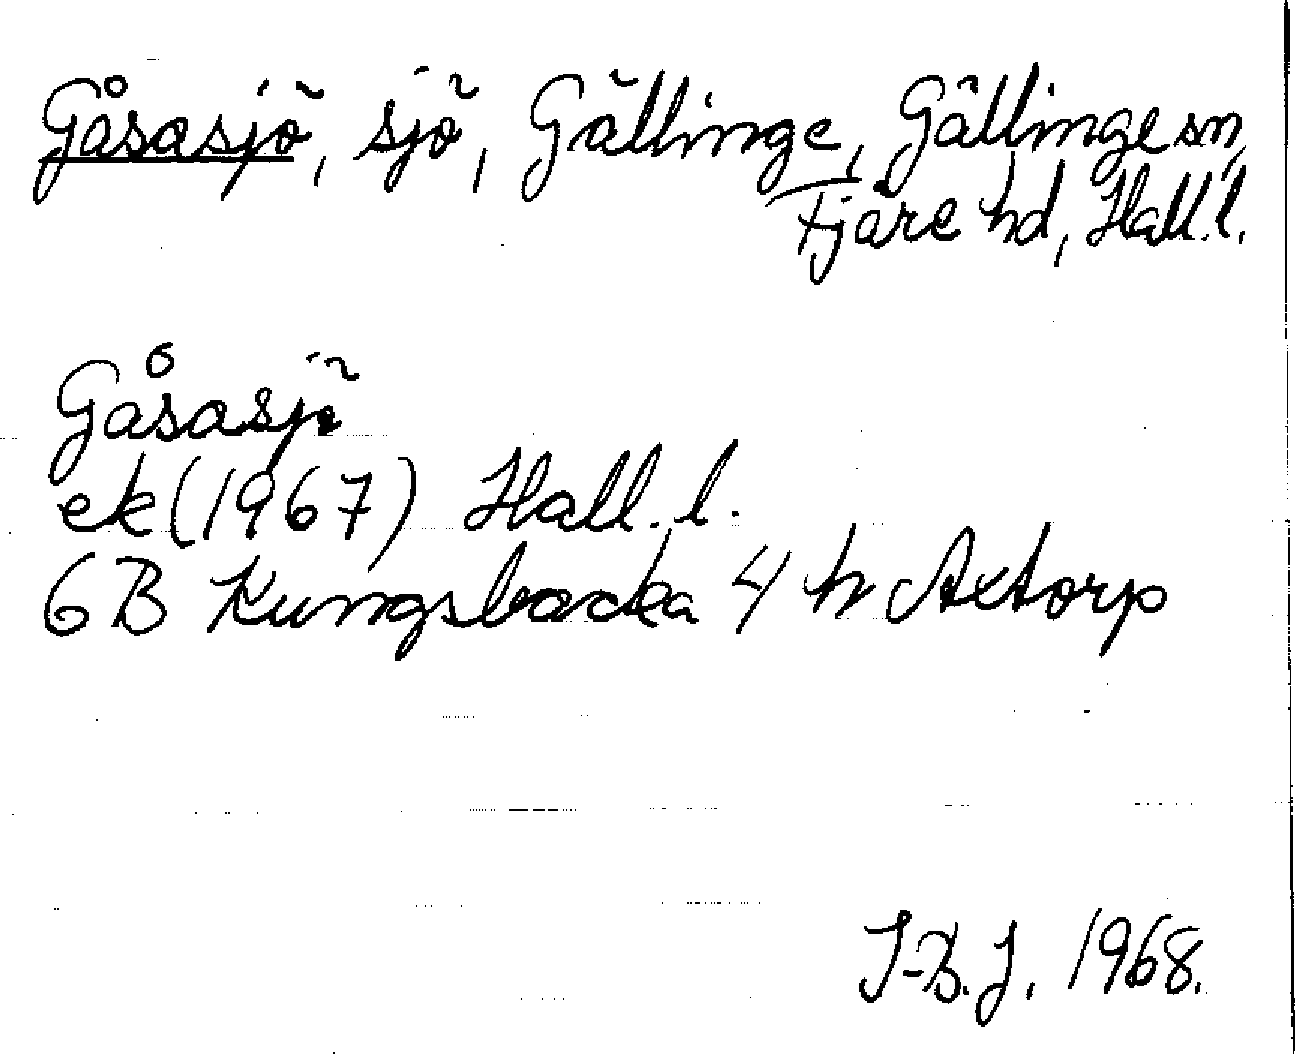 Gåsasjö, sjö, Gällinge, Gällinge sn,
Fjäre hd, Hall.l.
Gåsasjö
ek(1967) Hall.l.
6B Kungsbacka 4 h Axtorp
I-B.J. 1968.